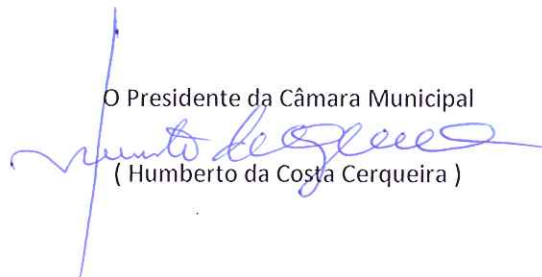 O Presidente da Câmara Municipal
( Humberto da Costa Cerqueira )